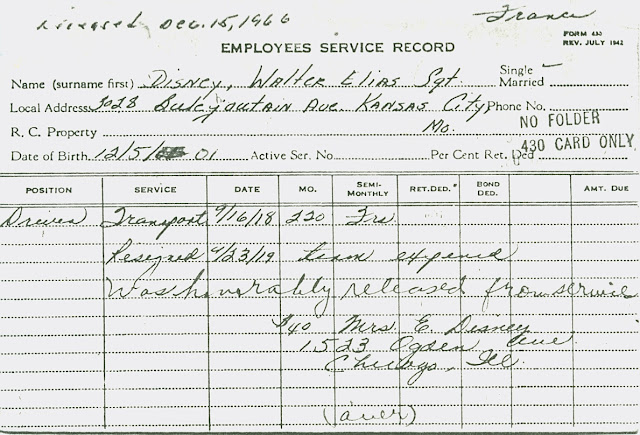 Deceased Dec. 15, 1966
France
FORM 430
REV. JULY 1942
EMPLOYEES SERVICE RECORD
Name (surname first) Disney, Walter Elias Sgt Single Married
Local Address 3028 Ave. Kansas City, Mo. Phone No.
R. C. Property
NO FOLDER
430 CARD ONLY
Date of Birth 12/5/01 Active Ser. No. Per Cent Ret. Ded
POSITION SERVICE DATE MO. SEMI-MONTHLY RET.DED. BOND DED. AMT. DUE
Driver Transport 9/16/18 220 Frs
Resigned 4/23/19 term expired
Was honorably released from service
$40 Mrs. E. Disney
1523 Ogden Ave
Chicago, Ill.
(over)